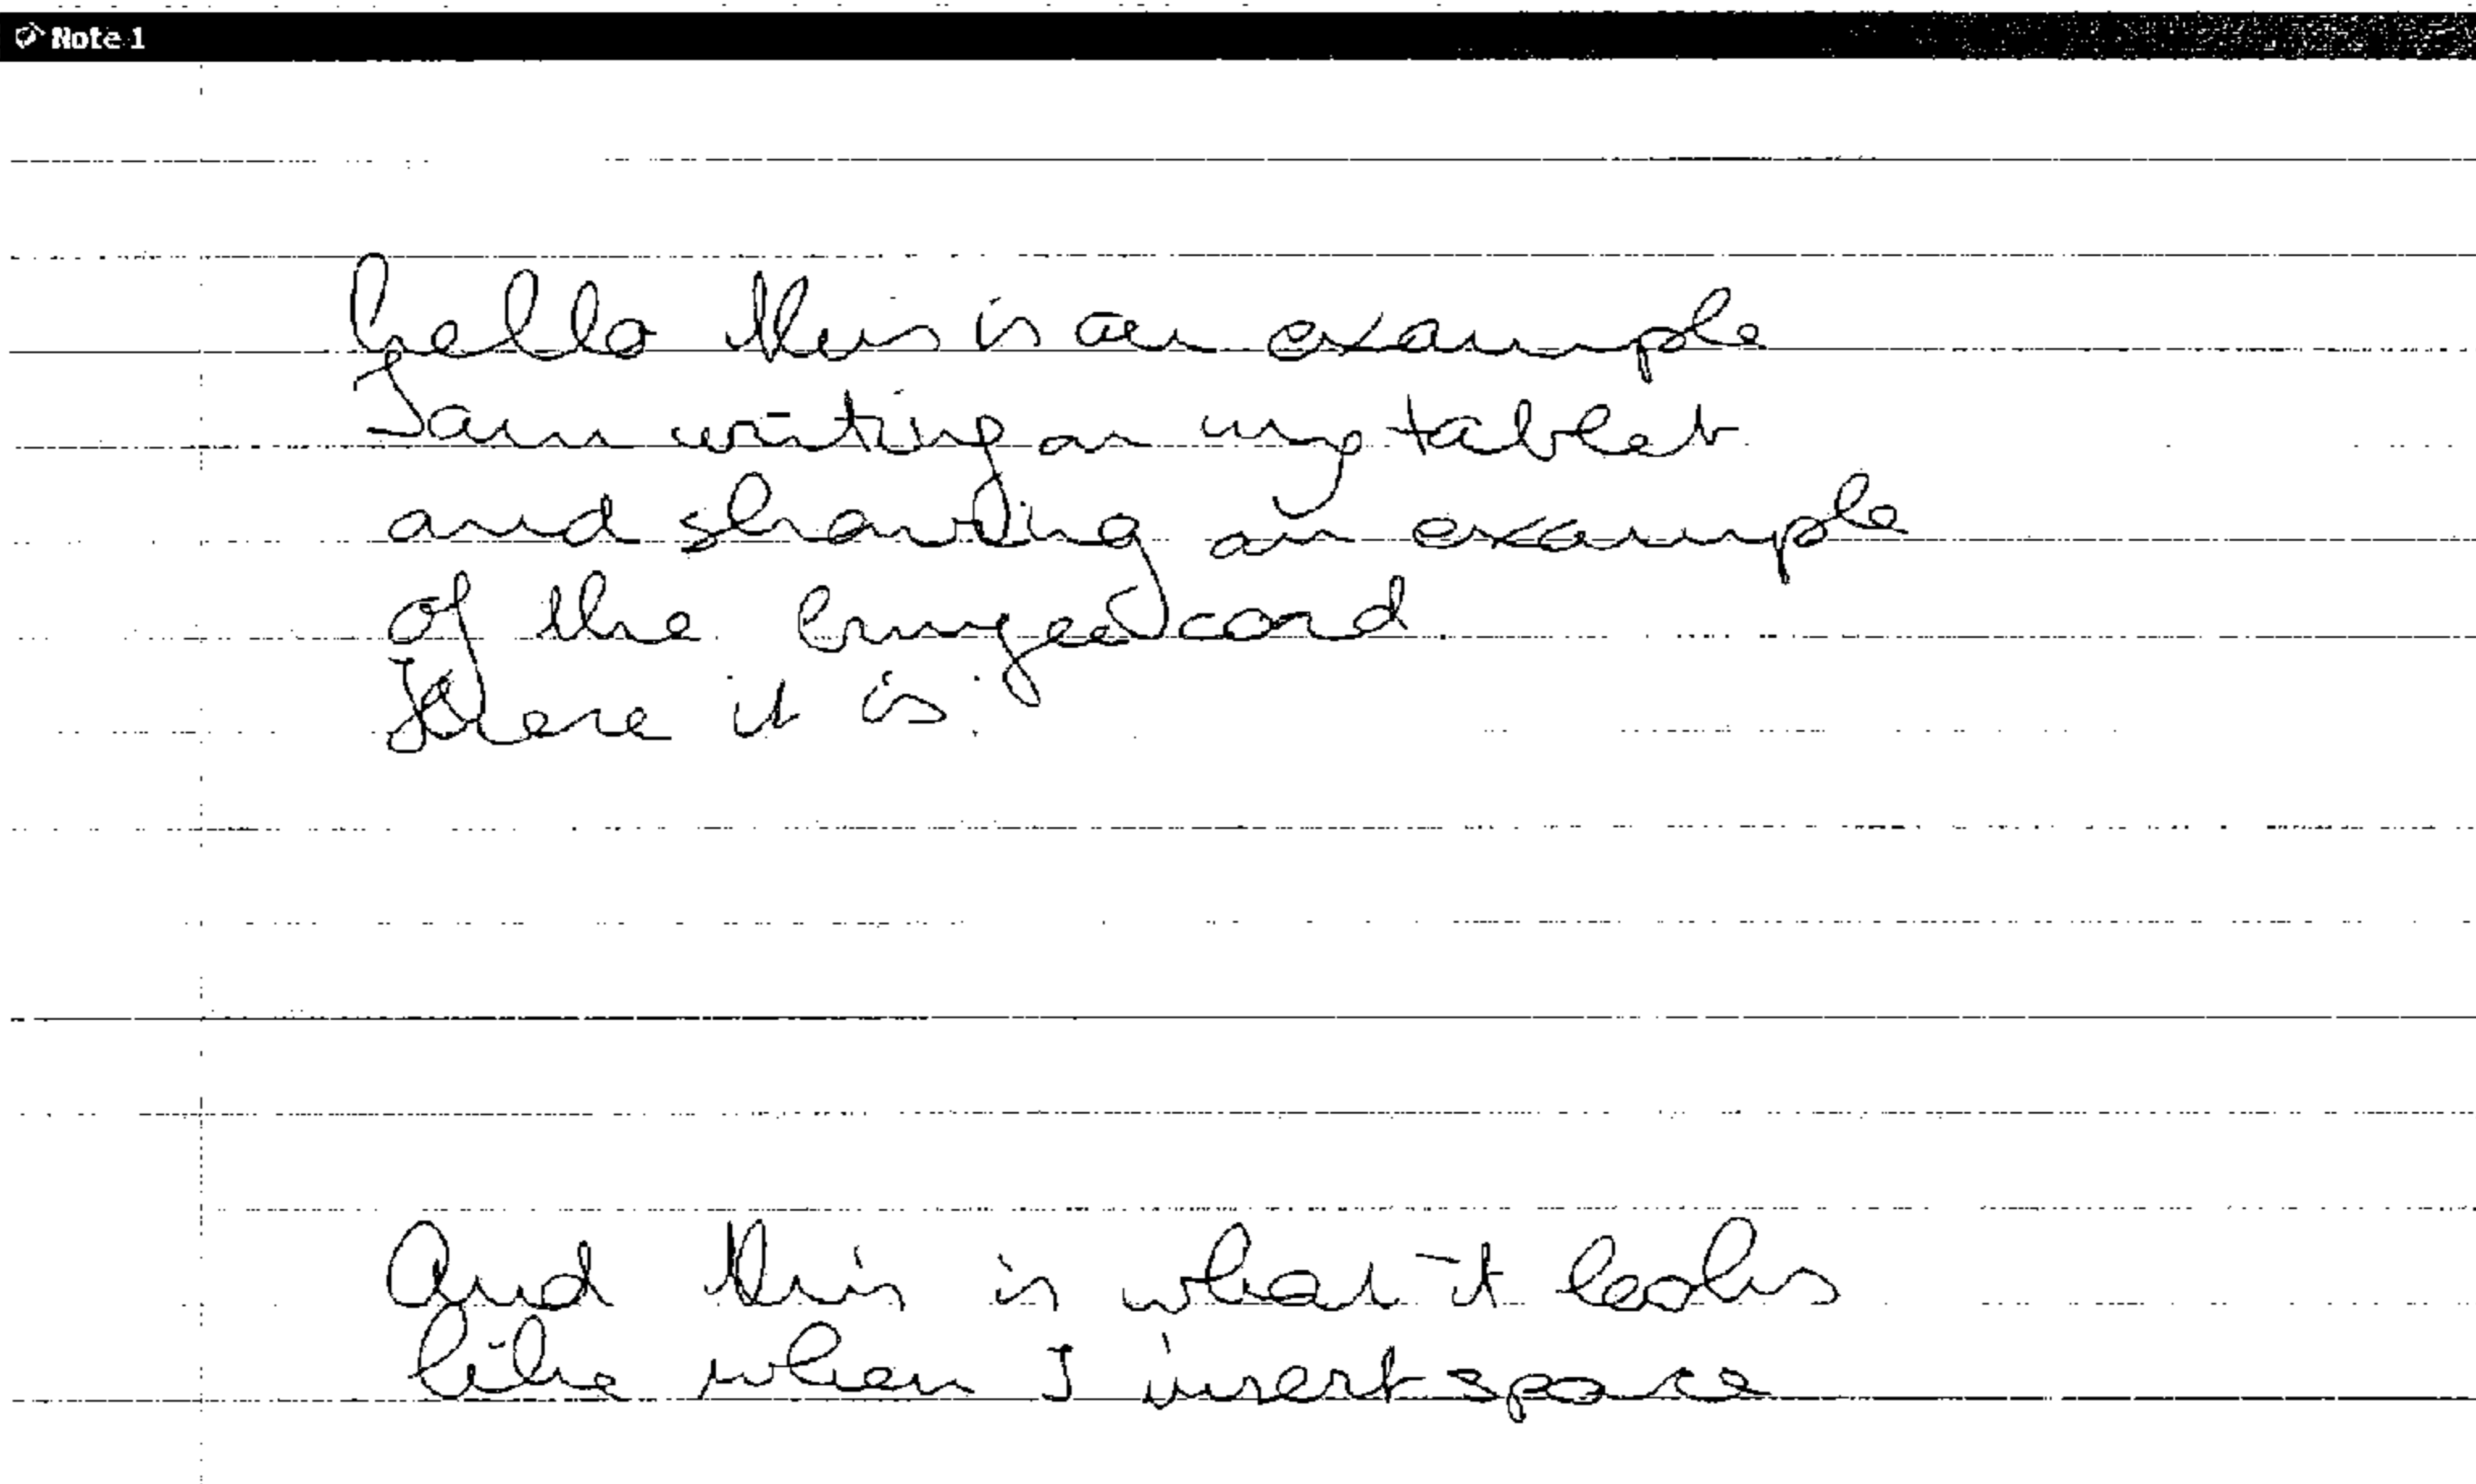 Note 1
hello this is an example
I am writing on my tablet
and showing an example
of the card
Here it is
And this is what it looks
like when I insert space